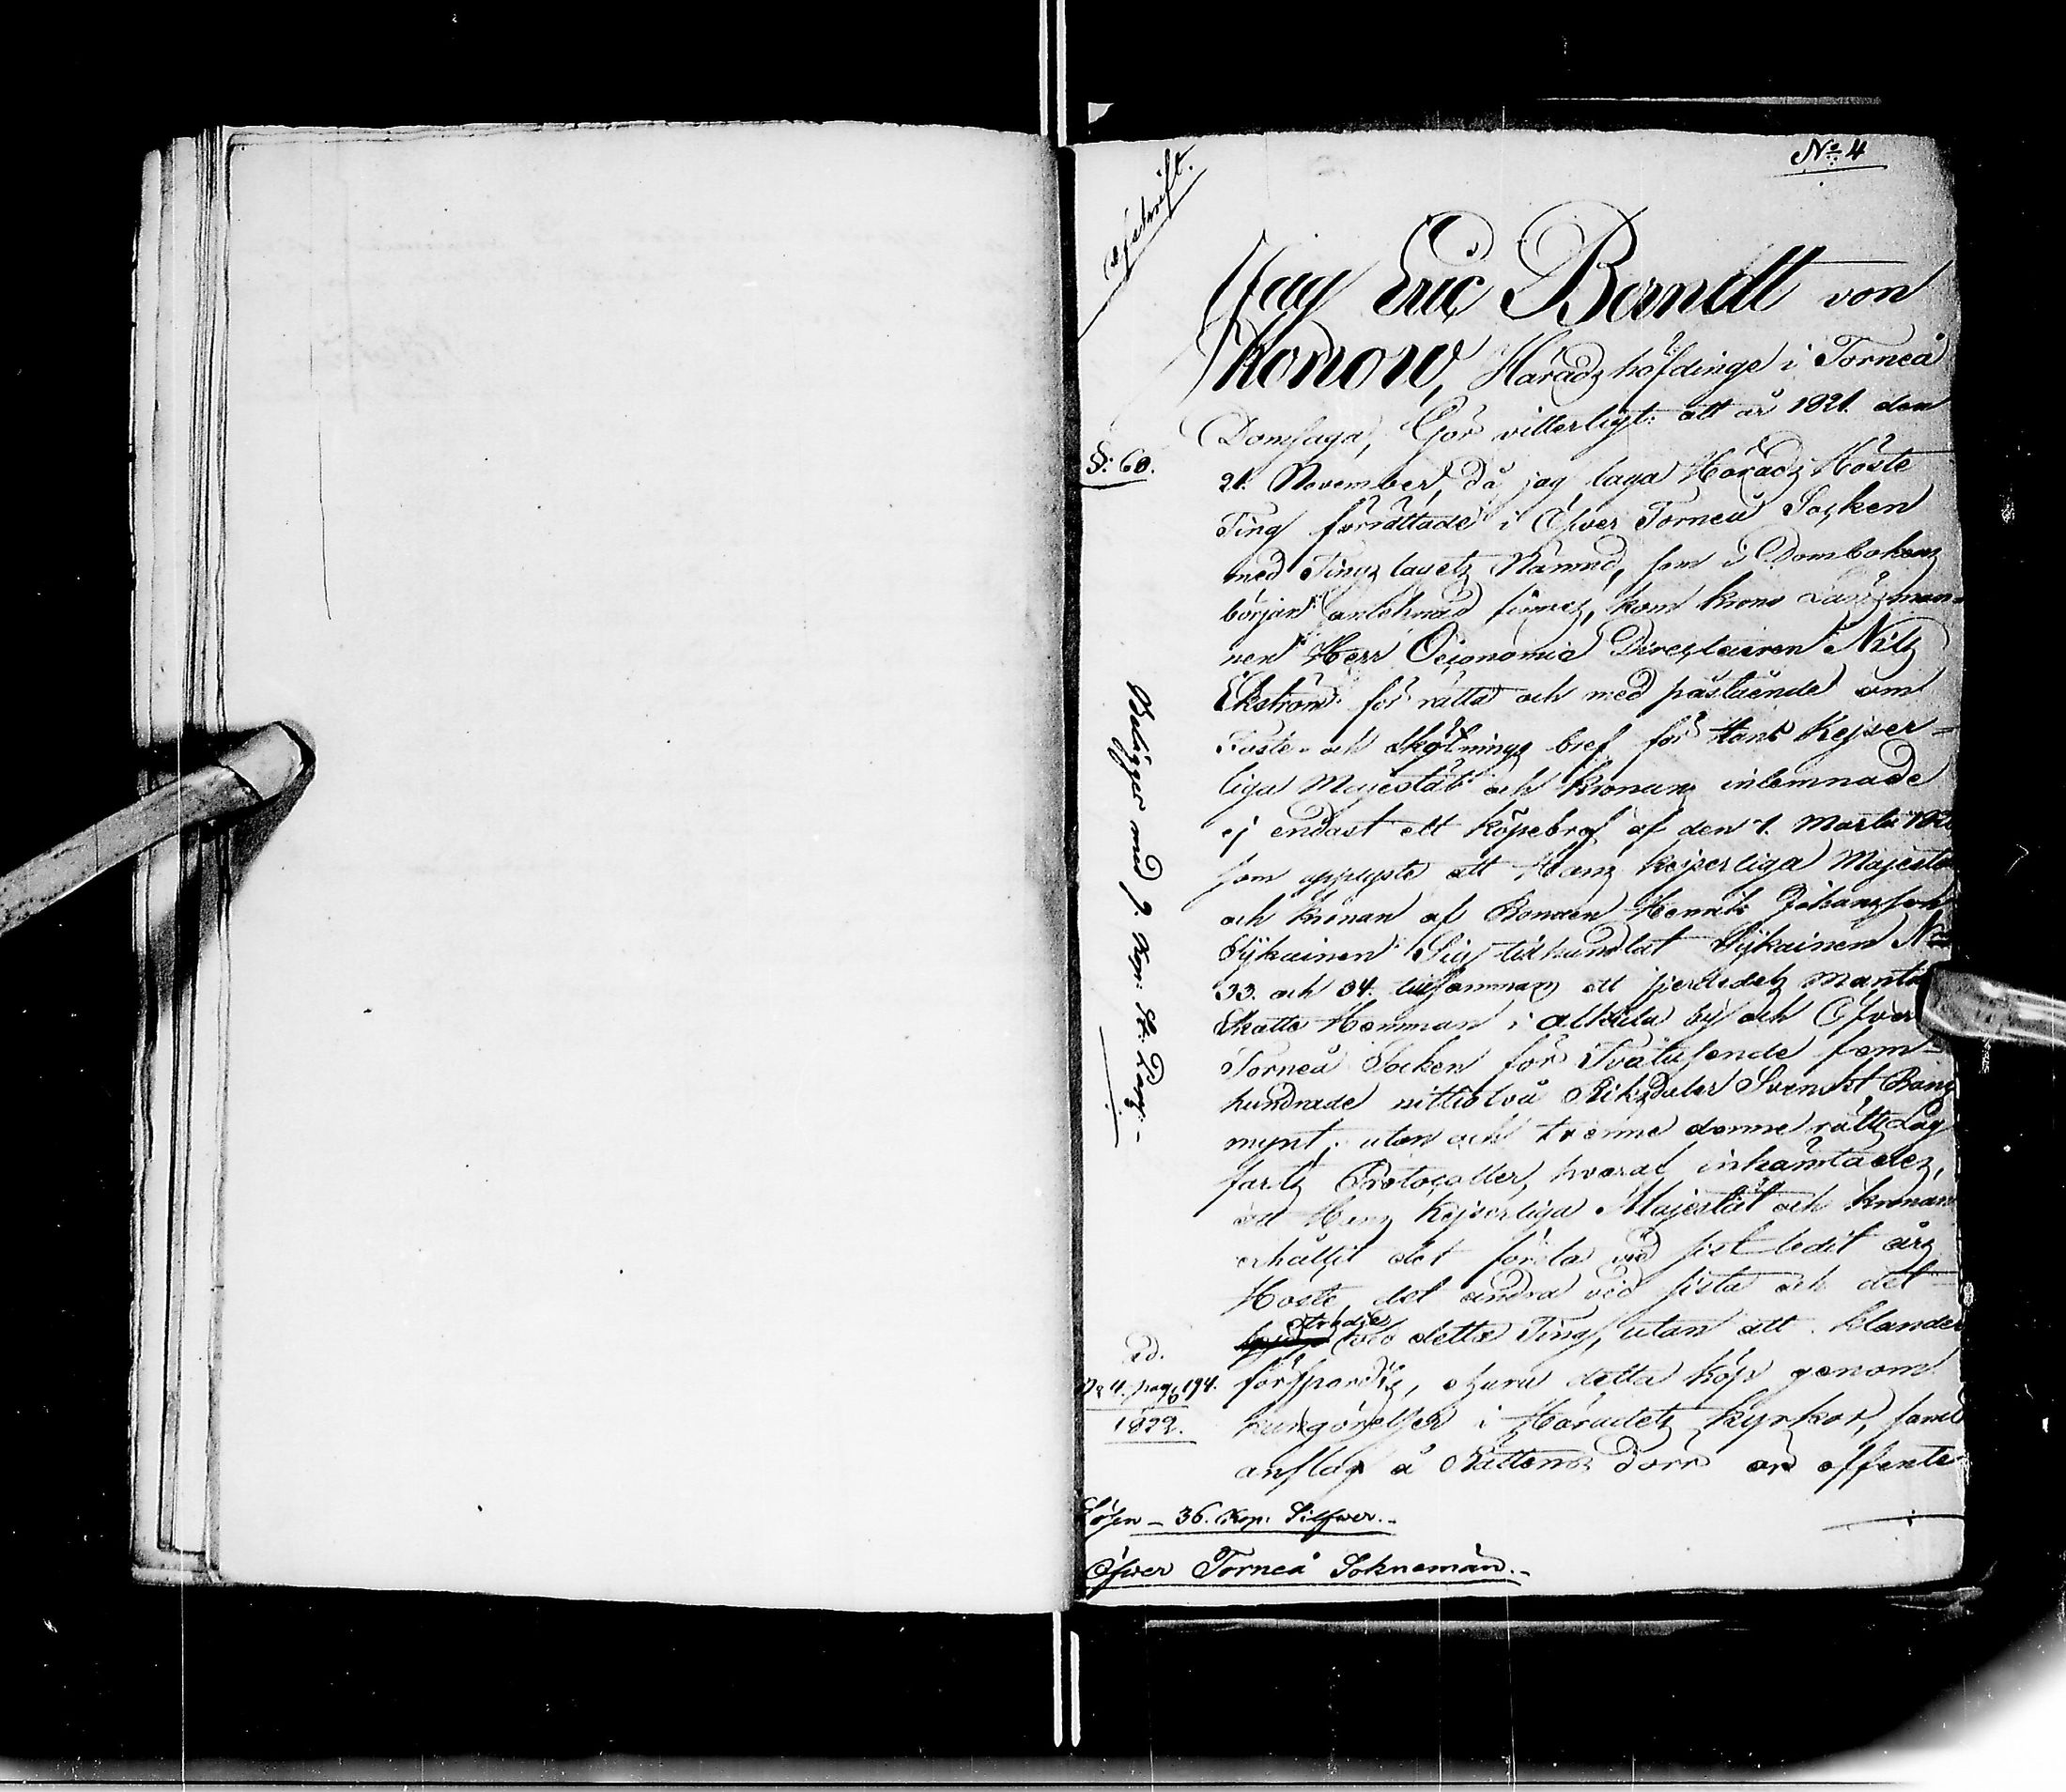 No 4
Afskrift.
Jag Eric Berndt von
Konow, Häradzhöfdinge i Torneå
Domsaga, Gör vitterligt: att år 1821. den
§: 60.
21. November, då jag laga Häradz Höste
Ting förrättade i Öfver Torneå Socken
med Tingzlagetz Nämnd, som i Dombokenz
början antecknad finnes, kom Krono Länsman-
nen Herr Oeconomie Directeuren Nilz
Ekström för rätta och med påstående om
Faste- och Skötningz bref för Hans Kejser-
liga Majestät och Kronan inlemnade
ej endast ett Köpebref af den 1. Martii 182
som upplyste att Hanz Kejserliga Majestät
och Kronan af Bonden Henrik Johanzson
Sykäinen Sig tilhandlat Sykäinen No
33. och 34. tillsamman ett fjerdedelz Mantal
Skatte Hemman i Alkula by och Öfver
Torneå Socken för Tvåtusende fem-
hundrade nittiotvå Riksdaler Svenskt Banco
mynt, utan och trenne denne rätts Lag
fartz Protocoller, hvaraf inhämtades,
att Hanz Kejserliga Majestät och Kronan
erhållit det första vid sist ledit årz
Höste det andra vid sista och det
tredje
vid detta Ting, utan att klander
försports, ehuru detta köp genom
kungörelser i Häradetz Kyrkor, samt
anslag å Rättens dörr är offente-
Belägges med 9. kop: St. Pap:-
ad.
No 4. pag 194.
1822.
Lösen - 36. Kop. Silfver.-
Öfver Torneå Soknemän.-